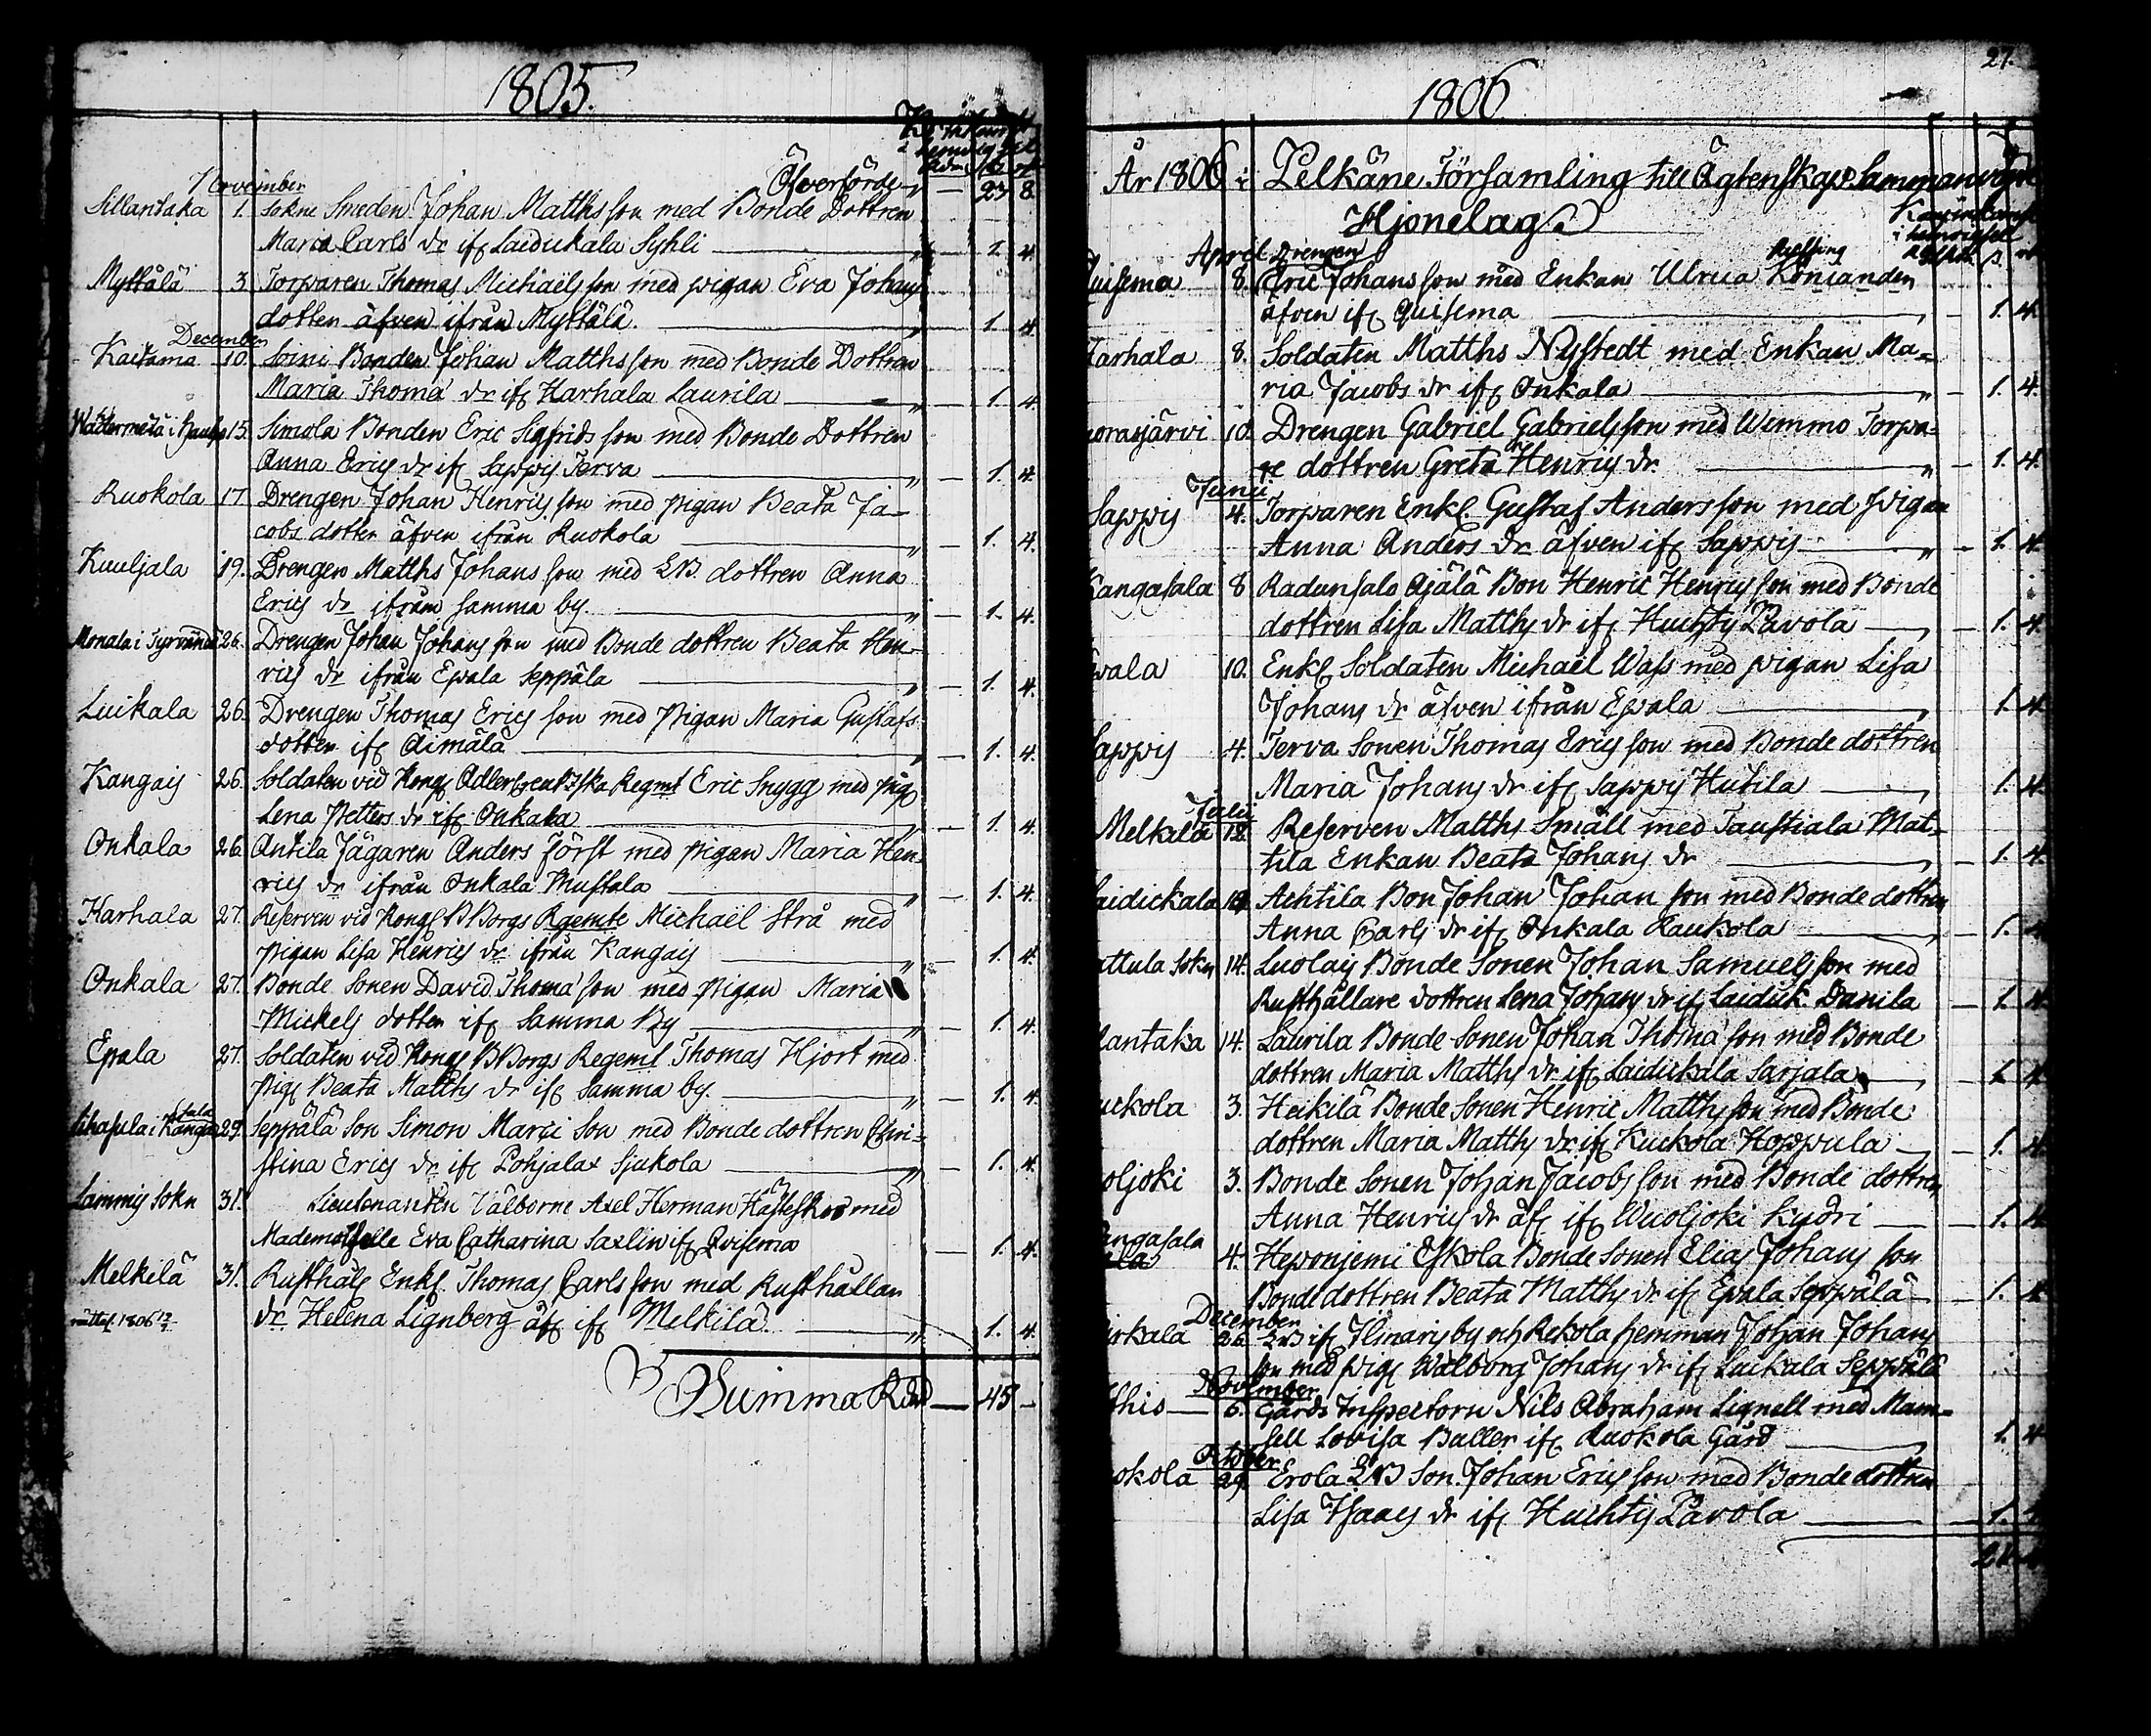 1805.
Öfverförde „ — 23 8
November
Sillantaka 1. Sokne Smeden Johan Matthsson med Bonde Dottren
Maria Carls dr ifr Laidickala Syhli „ — 1. 4
Myttälä 3 Torparen Thomas Michaelsson med pigan Eva Johans
dotter äfven ifrån Myttälä. „ 1. 4
December
Kaitama 10. Soini Bonden Johan Matthsson med Bonde Dottren
Maria Thoma dr ifr Harhala Laurila „ — 1. 4
15. Simola Bonden Eric Sigfridsson med Bonde Dottren
Anna Erics dr ifr Sappis Terva „ — 1. 4
Ruokola 17. Drengen Johan Henricsson med pigan Beata Ja-
cobs dotter äfven ifrån Ruokola „ — 1. 4.
Kuuljala 19. Drengen Matths Johansson med LB. dottren Anna
Erics dr ifrån samma by. „ — 1. 4.
Monala i Tyrvändä 26. Drengen Johan Johansson med Bonde dottren Beata Hen-
rics dr ifrån Epala Seppälä „ — 1. 4.
Luikala 26. Drengen Thomas Ericsson med pigan Maria Gustafs
dotter ifr Äimälä „ 1. 4.
Kangais 26. Soldaten vid Kongl Adlercreutzska Regmt Eric Snygg med pig
Lena Petters dr ifr Onkala „ — 1. 4.
Onkala 26. Antila Jägaren Anders Först med pigan Maria Hen-
rics dr ifrån Onkala Mustala „ — 1. 4.
Harhala 27. Reserven vid Kongl BBorgs Rgemte Michaël Strå med
pigan Lisa Henrics dr ifrån Kangais „ — 1. 4.
Onkala 27. Bonde Sonen David Thoma son med pigan Maria
Mickels dotter ifr samma By „ — 1. 4.
Epala 27. Soldaten vid Kongl BBorgs Regemt Thomas Hjort med
pig Beata Matths dr ifr samma by. „ — 1. 4.
29. Seppälä Son Simon Marci Son med Bonde dottren Chri-
stina Erics dr ifr Pohjalax Sjukola „ — 1. 4.
Lammis Sokn 31. Lieutenanten Välborne Axel Herman Hästesko med
Mademoiselle Eva Catharina Saxlin ifr Qvisema — 1. 4.
Melkilä 31. Rusthåls Enkl. Thomas Carlsson med Rusthållar
dr. Helena Lignberg äfv ifr Melkilä. „ 1. 4.
Summa Rdr — 45 —
27.
1806.
År 1806 i Pelkäne Församling till Ägtenskap Sammanvigde
Hjonelag
April Drengen
Quisema 8. Eric Johansson med Enkan Ulrica
äfven ifr Quisema — 1. 4.
Harhala 8. Soldaten Matths Nystedt med Enkan Ma-
ria Jacobs dr ifr Onkala „ — 1. 4.
10. Drengen Gabriel Gabrielsson med Wemmo Torpa-
re dottren Greta Henrics dr. „ — 1. 4.
Junii
Sappis 4. Torparen Enkl. Gustaf Andersson med pigan
Anna Anders dr äfven ifr Sappis „ — 1. 4.
Kangasala 8 Radunsalo Äjälä Bon Henric Henricsson med Bonde
dottren Lisa Matths dr ifr Huchtis Pavola — 1. 4.
Epala 10. Enkl Soldaten Michaël Wass med pigan Lisa
Johans dr äfven ifrån Epala 1. 4
Sappis 4. Terva Sonen Thomas Ericsson med Bonde dottren
Maria Johans dr ifr Sappis Hutila 1. 4.
Julii
Melkilä 12. Reserven Matths Smäll med Taustiala Mat-
tila Enkan Beata Johans dr — 1. 4.
Laidickala Achtila Bon Johan Johan son med Bonde dottren
Anna Carls dr ifr Onkala Raukola — 1. 4
14. Luolais Bonde Sonen Johan Samuelsson med
Rusthållare dottren Lena Johans dr ifr Laidik Danila — 1. 4
Sillantaka 14. Laurila Bonde Sonen Johan Thoma son med Bonde
dottren Maria Matths dr ifr Laidickala Sarjala — 1. 4
Kuckola 3. Heikilä Bonde Sonen Henric Matthsson med Bonde
dottren Maria Matths dr ifr Kuckola Hoppula — 1. 4
3. Bonde Sonen Johan Jacobsson med Bonde dottren
Anna Henrics dr äfv ifr Wuoljoki Kyöri — 1. 4
Kangasala 4. Heponjemi Eskola Bonde Sonen Elias Johans son
Bonde dottren Beata Matths dr ifr Epala Seppälä — 1. 4
December
LB ifr Ilmaris by och Rekola hemman Johan Johans
son med pig Walborg Johans dr ifr Luikala Seppälä
November
6. Gårds Inspectorn Nils Abraham Lignell med Mam-
sell Lovisa Baller ifr Ruokola Gård 1. 4
October
29. Erola LB Son Johan Ericsson med Bonde dottren
Lisa Isaacs dr ifr Huchtis Pavola — 1. 4